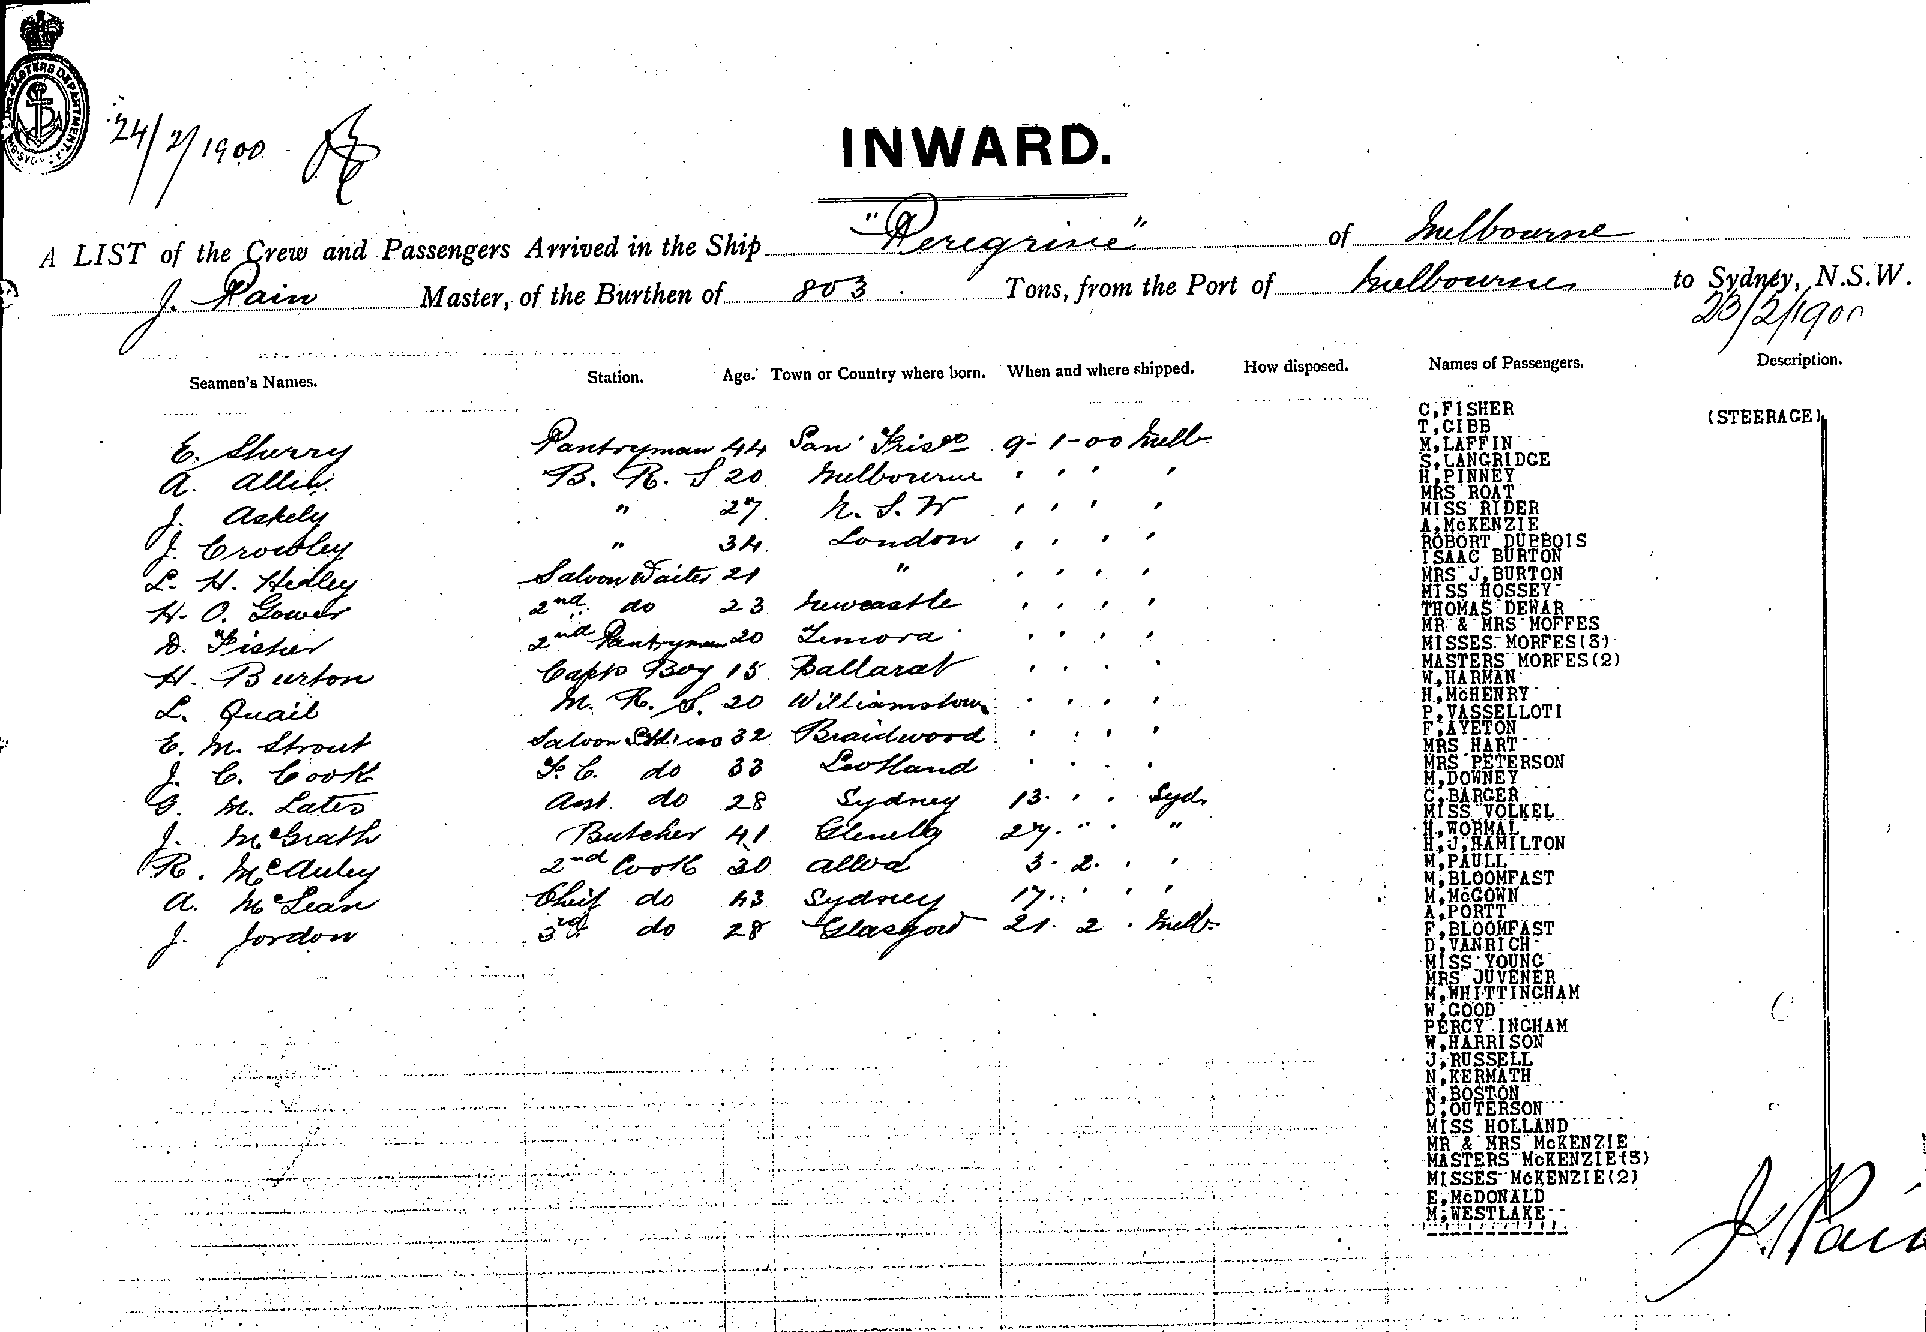 24/2/1900
INWARD.
A LIST of the Crew and Passengers Arrived in the Ship "Peregrine" of Melbourne
J. Pain Master, of the Burthen of 803 Tons, from the Port of Melbourne to Sydney, N.S.W.
23/2/1900
Seamen's Names. Station. Age. Town or Country where born. When and where shipped. How disposed. Names of Passengers. Description.
E. Sherry Pantryman 44 San Frisco 9-1-00 Melb
A. Allen B. R. S 20 Melbourne ' ' ' '
J. Askely " 27 N. S. W ' ' ' '
J. Crowley " 34 London ' ' ' '
L. H. Hedley Saloon Waiter 21 " ' ' ' '
H. O. Gower 2nd do 23 Newcastle ' ' ' '
D. Fisher 2nd Pantryman 20 Temora ' ' ' '
H. Burton Capts Boy 15 Ballarat ' ' ' '
L. Quail M. R. S. 20 Williamstown ' ' ' '
E. M. Strout Saloon 32 Braidwood ' ' ' '
J. C. Cook F. C. do 33 Scotland ' ' ' '
G. M. Lates Asst. do 28 Sydney 13 ' ' Syd.
J. McGrath Butcher 41 Glenelg 27 " " "
R. McAuley 2nd Cook 30 Alloa 3. 2. ' '
A. McLean Chief do 43 Sydney 17 ' ' '
J. Jordon 3rd do 28 Glasgow 21. 2 ' Melb.
C,FISHER (STEERAGE)
T,GIBB
M,LAFFIN
S,LANGRIDGE
H,PINNEY
MRS ROAT
MISS RIDER
A,McKENZIE
ROBORT DUPBOIS
ISAAC BURTON
MRS J,BURTON
MISS HOSSEY
THOMAS DEWAR
MR & MRS MOFFES
MISSES MORFES(3)
MASTERS MORFES(2)
W,HARMAN
H,McHENRY
P,VASSELLOTI
F,AYETON
MRS HART
MRS PETERSON
M,DOWNEY
C,BARGER
MISS VOLKEL
H,WORMAL
H,J,HAMILTON
M,PAULL
M,BLOOMFAST
M,McGOWN
A,PORTT
F,BLOOMFAST
D,VANRICH
MISS YOUNG
MRS JUVENER
M,WHITTINGHAM
W,GOOD
PERCY INGHAM
W,HARRISON
J,RUSSELL
N,KERMATH
N,BOSTON
D,OUTERSON
MISS HOLLAND
MR & MRS McKENZIE
MASTERS McKENZIE(3)
MISSES McKENZIE(2)
E,McDONALD
M,WESTLAKE
J. Pain